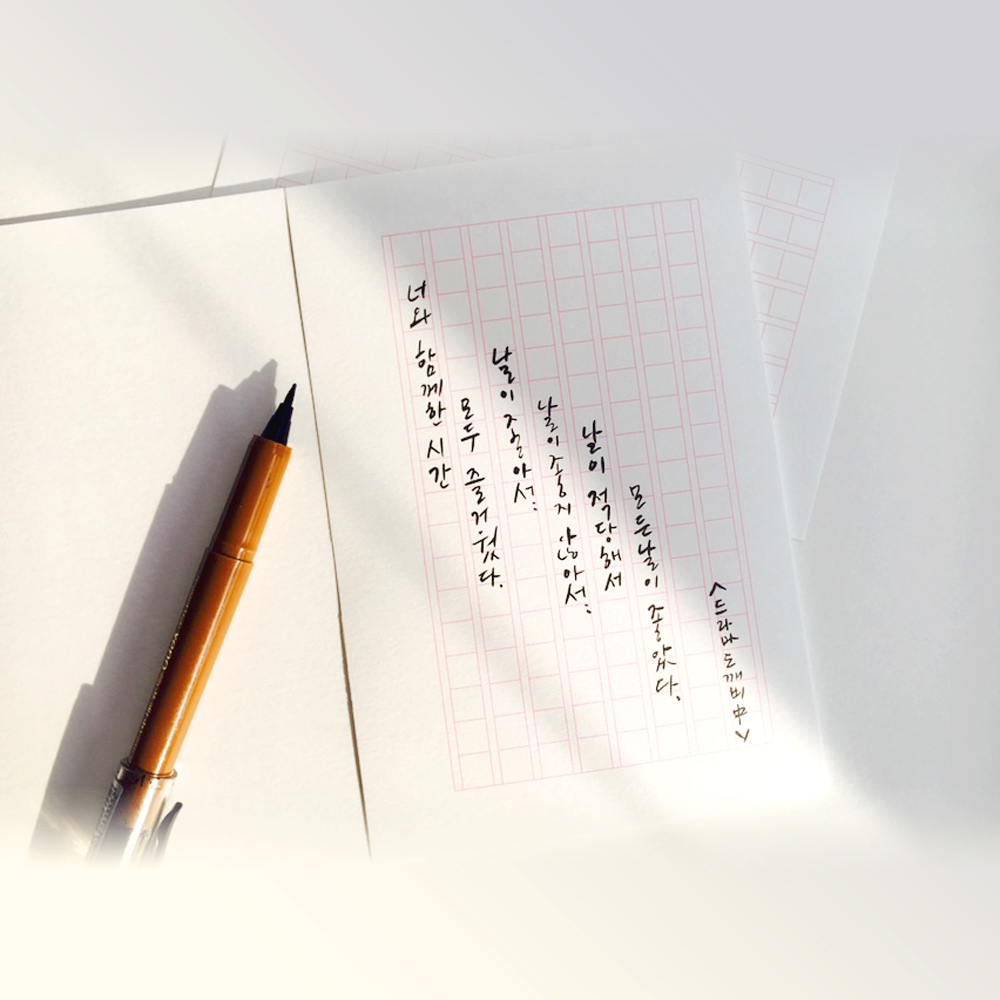 너와 함께한 시간
모두 즐거웠다.
날이 좋아서.
날이 좋지 않아서.
날이 적당해서
모든날이 좋았다.
<드라마 도깨비 中>